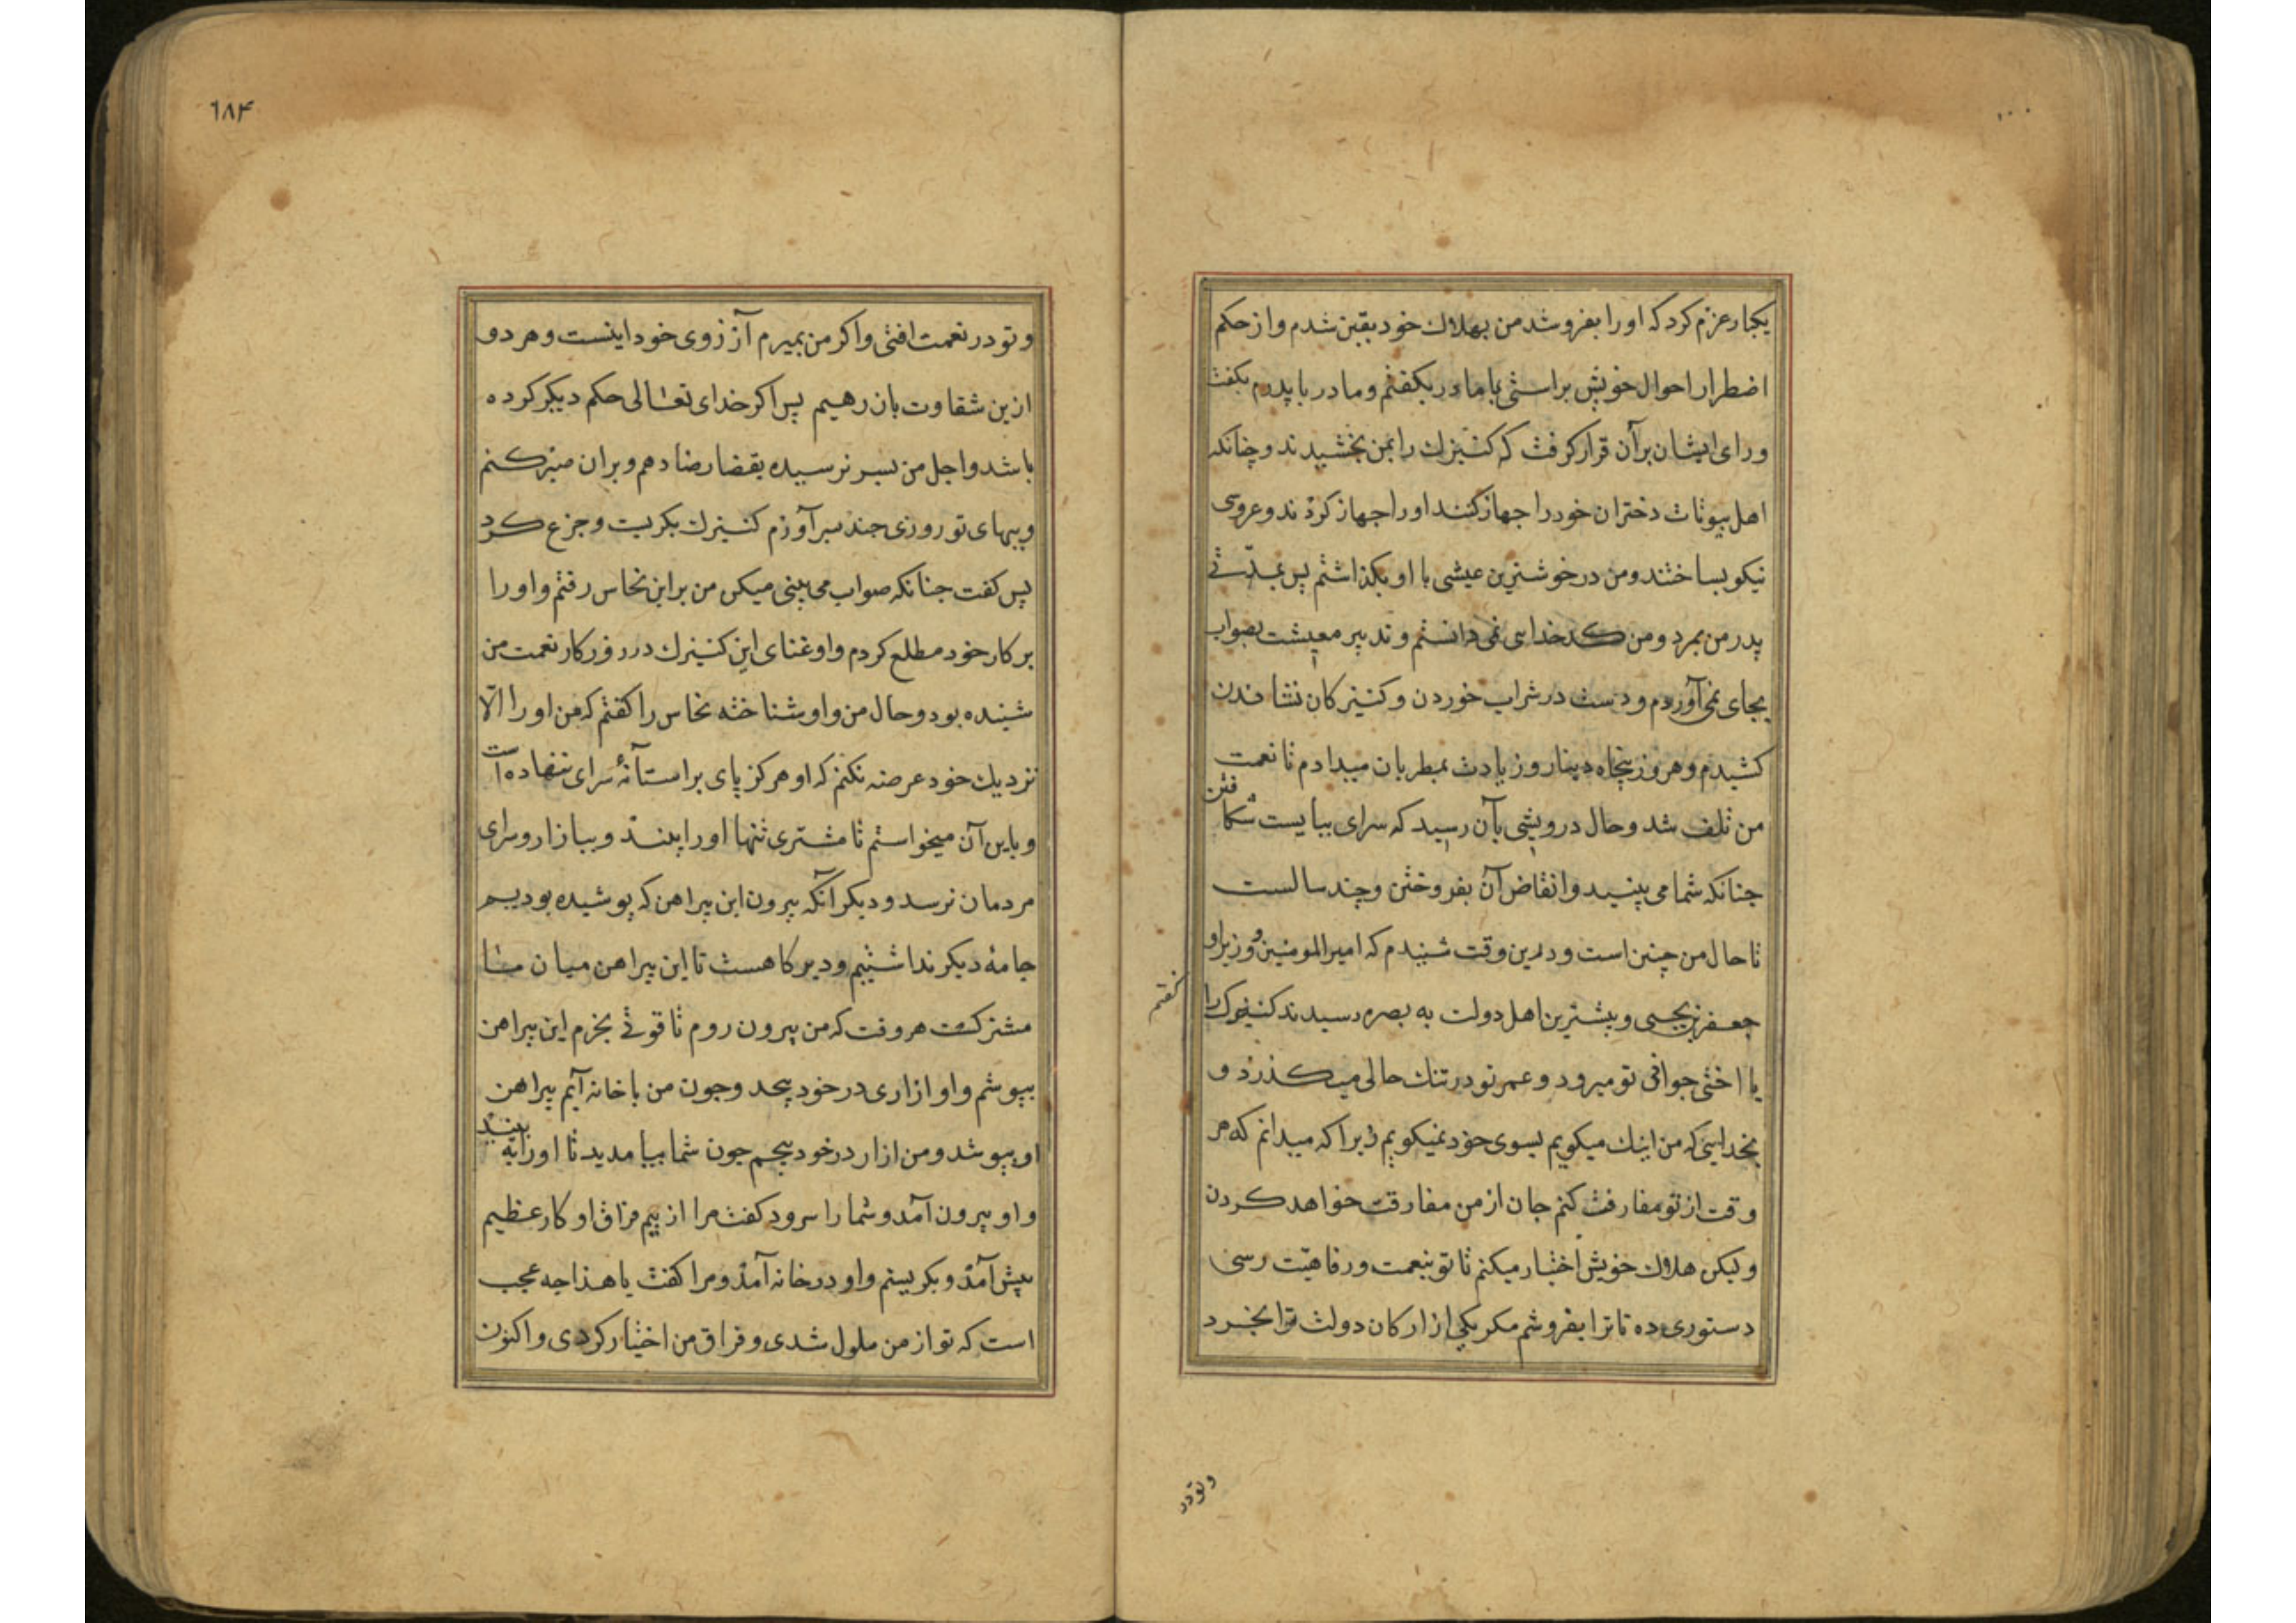 یکبار عزم کرد که او را بفروشد من بهلاك خود بقین شدم و از حکم
اضطرار احوال خویش براستی با مادر بکفتم و مادر با پدرم بکفت
و رای ایشان بر آن قرار کرفت که کنیزك را بمن بخشیدند و چنانکه
اهل بیوتات دختران خود را جهاز کنند او را جهاز کردند و عروسی
نیکو بساختند و من در خوشترین عیشی با او بکذاشتم پس بمدتی
پدر من بمرد و من کدخدایی نمی دانستم و تدبیر معیشت بصواب
بجای نمی آوردم و دست در شراب خوردن و کنیزکان نشاندن
کشیدم و هر روز پنجاه دینار و زیادت بمطربان میدادم تا نعمت
من تلف شد و حال درویشی بآن رسید که سرای ببایست شکافتن
چنانکه شما می بینید و انقاض آن بفروختن و چند سالست
تا حال من چنین است و درین وقت شنیدم که امیر المومنین و وزیر او
جعفر بن یحیی و بیشترین اهل دولت به بصره رسیدند کنیزك را
کفتم
یا اختی جوانی تو میرود و عمر تو در تنك حالی میکذرد و
بخدایی که من اینك میکویم بسوی خود نمیکویم زیرا که میدانم که هر
وقت از تو مفارقت کنم جان از من مفارقت خواهد کردن
ولیکن هلاك خویش اختیار میکنم تا تو بنعمت و رفاهیت رسی
دستوری ده تا ترا بفروشم مکر یکی از ارکان دولت ترا بخرد
و تو در
٦٨۴
و تو در نعمت افتی و اکر من بمیرم آرزوی خود اینست و هر دو
ازین شقاوت باز رهیم پس اکر خدای تعالی حکم دیکر کرده
باشد و اجل من بسر نرسیده بقضا رضا دهم و بران صبر کنم
و ببهای تو روزی چند بسر آورم کنیزك بکریست و جزع کرد
پس کفت چنانکه صواب می بینی میکن من بر این نخاس رفتم و او را
بر کار خود مطلع کردم و او غنای این کنیزك در روزکار نعمت من
شنیده بود و حال من و او شناخته نخاس را کفتم که من او را الّا
نزدیك خود عرضه نکنم که او هرکز پای بر استانهٔ سرای ننهاده است
و باین آن میخواستم تا مشتری تنها او را بیند و ببازار و سرای
مردمان نرسد و دیکر آنکه بیرون این پیراهن که پوشیده بودیم
جامهٔ دیکر نداشتیم و دیرکاهست تا این پیراهن میان ما
مشترکست هر وقت که من بیرون روم تا قوتی بخرم این پیراهن
بپوشم و او ازاری در خود پیچد و چون من با خانه آیم پیراهن
او بپوشد و من ازار در خود پیچم چون شما بیامدید تا او را ببینید
و او بیرون آمد و شما را سرود کفت مرا از بیم فراق او کار عظیم
پیش آمد و بکریستم و او در خانه آمد و مرا کفت یا هذا چه عجب
است که تو از من ملول شدی و فراق من اختیار کردی و اکنون